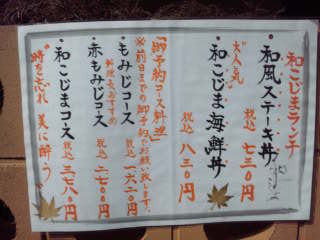 和こじまランチ
・和風ステーキ丼
税込 七三〇円
"大人気"
・和こじま海鮮丼
税込 八三〇円
『御予約コース料理』
※前日までの御予約でお願い致します。
・もみじコース
税込 一六二〇円
料理長おすすめ
・赤もみじコース
税込 二七〇〇円
・和こじまコース
税込 三七八〇円
"時を忘れ 美に酔う"